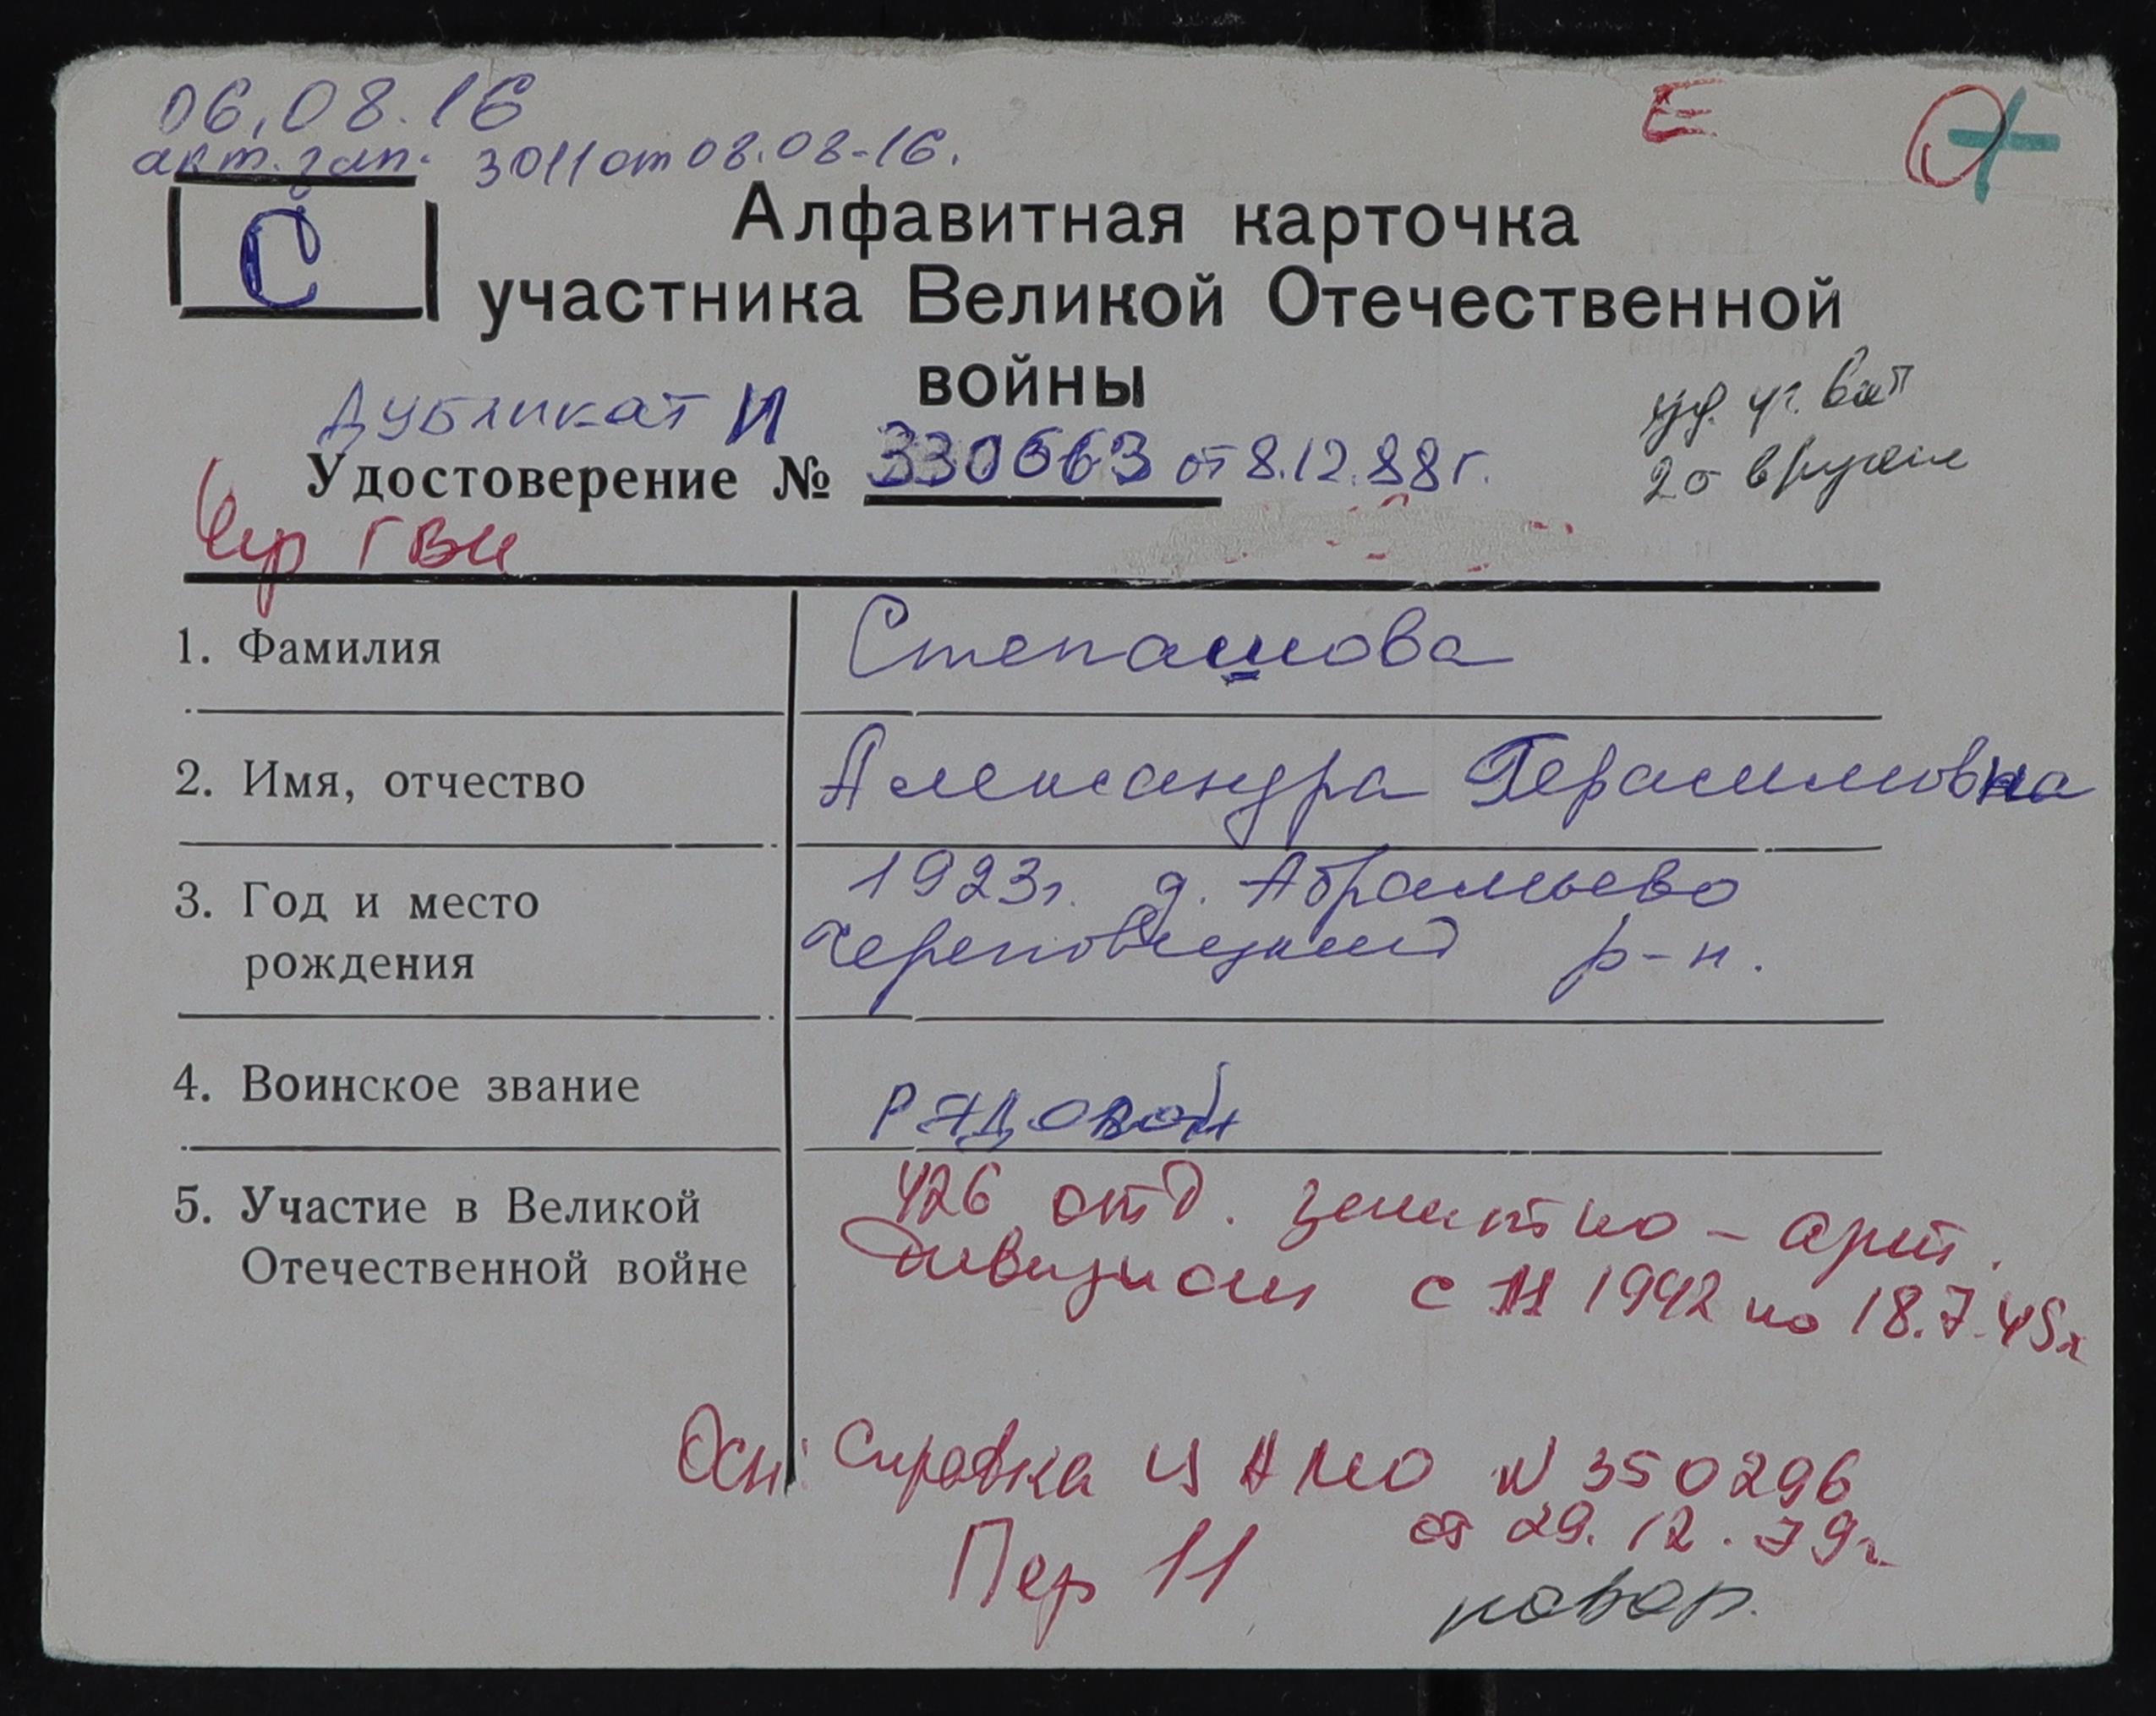 06.08.16
E
акт. зап. 3011 от 08.08-16.
С
Алфавитная карточка
участника Великой Отечественной
войны
Дубликат И
уд. уч. вов
Удостоверение № 330663 от 8.12.88 г.
Чер ГВК
1. Фамилия Степашова
2. Имя, отчество Александра Герасимовна
3. Год и место рождения
1923 г. д. Абрамьево
Череповецкий р-н.
4. Воинское звание РЯДОВОЙ
5. Участие в Великой Отечественной войне
426 отд. зенитно-арт.
дивизион с 11 1942 по 18.7.45г
Осн: Справка ЦАМО N 350296
от 29.12.79г
Пер 11
повар.